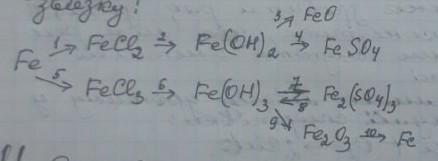 звезку!
3↗ FeO
1↗ FeCl₂ 2→ Fe(OH)₂ 4→ FeSO₄
Fe
5↘ FeCl₃ 6→ Fe(OH)₃ 7⇄8 Fe₂(SO₄)₃
9↘ Fe₂O₃ 10→ Fe